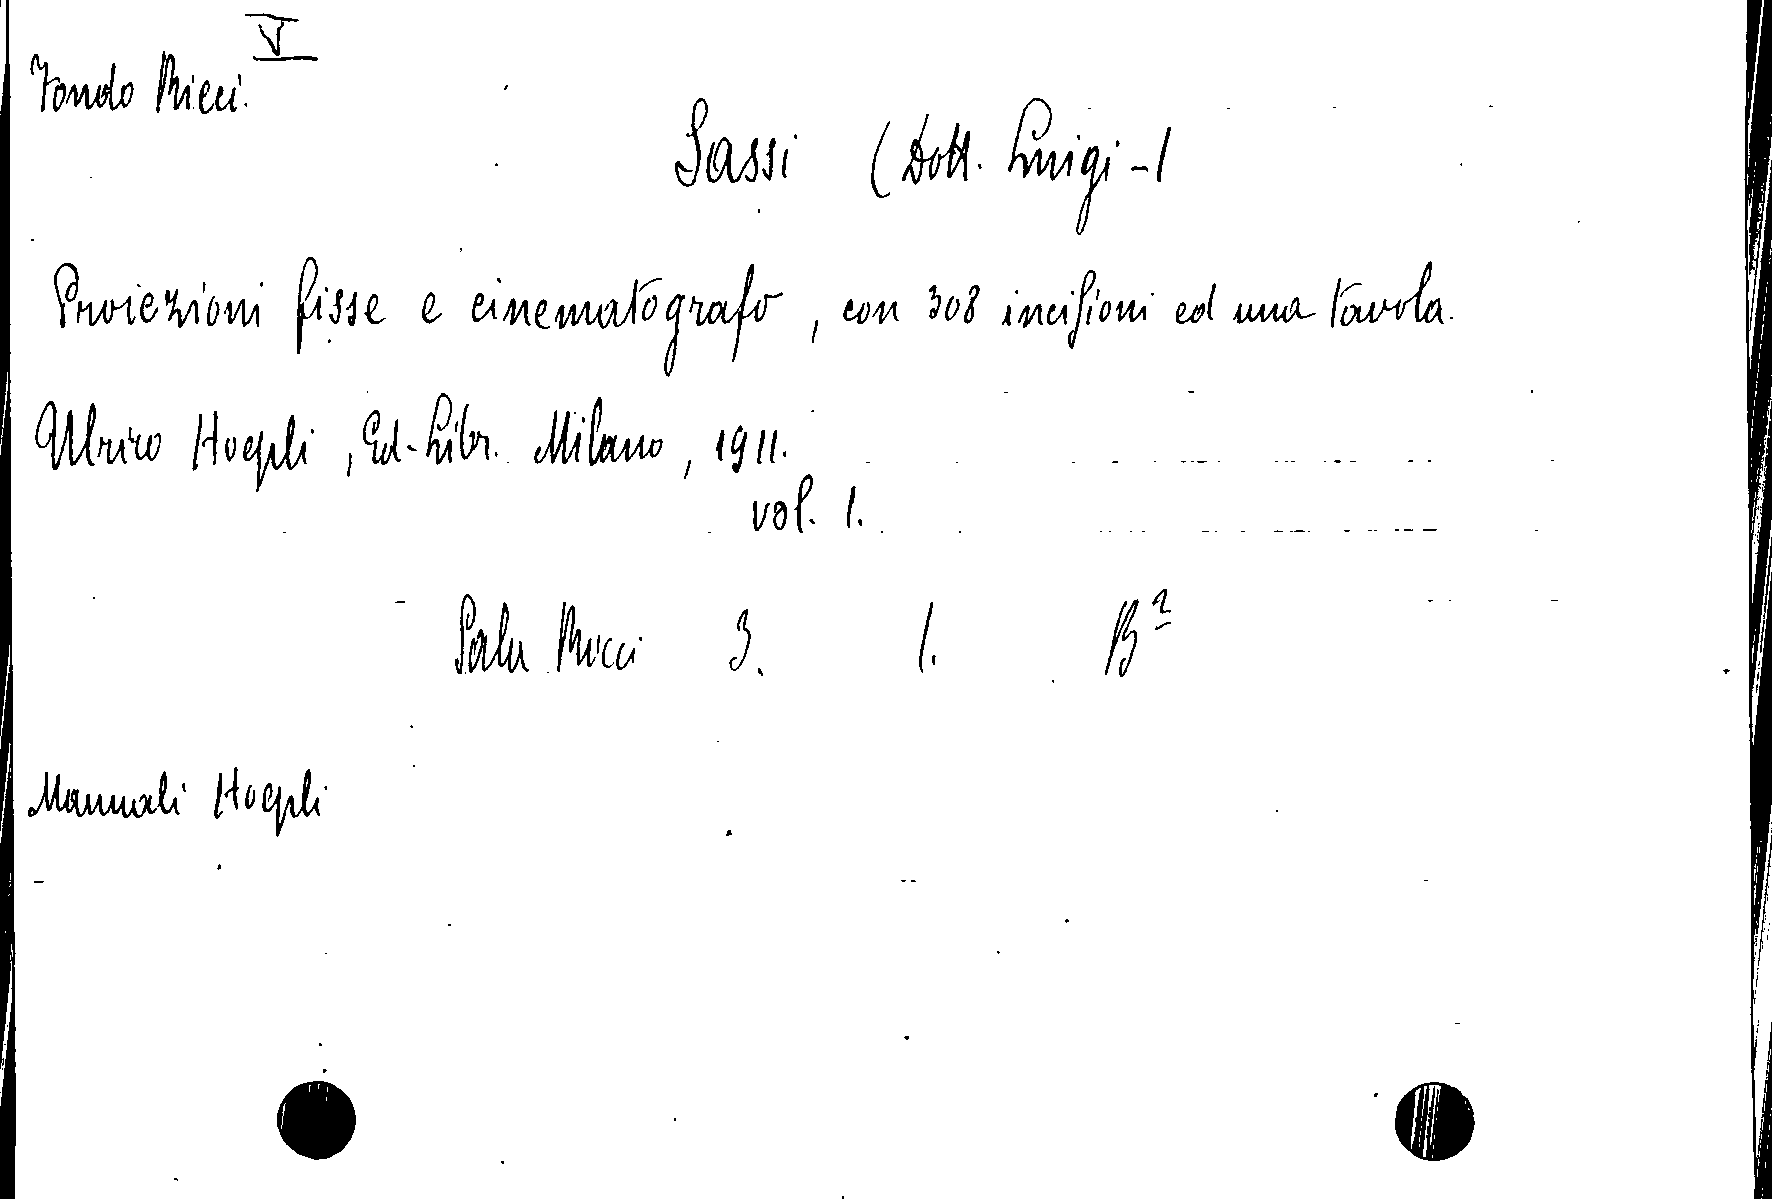 V
Fondo Ricci.
Sassi (Dott. Luigi-)
Proiezioni fisse e cinematografo, con 308 incisioni ed una tavola.
Ulrico Hoepli, Ed-Libr. Milano, 1911.
vol. 1.
Sala Ricci 3. 1. B²
Manuali Hoepli